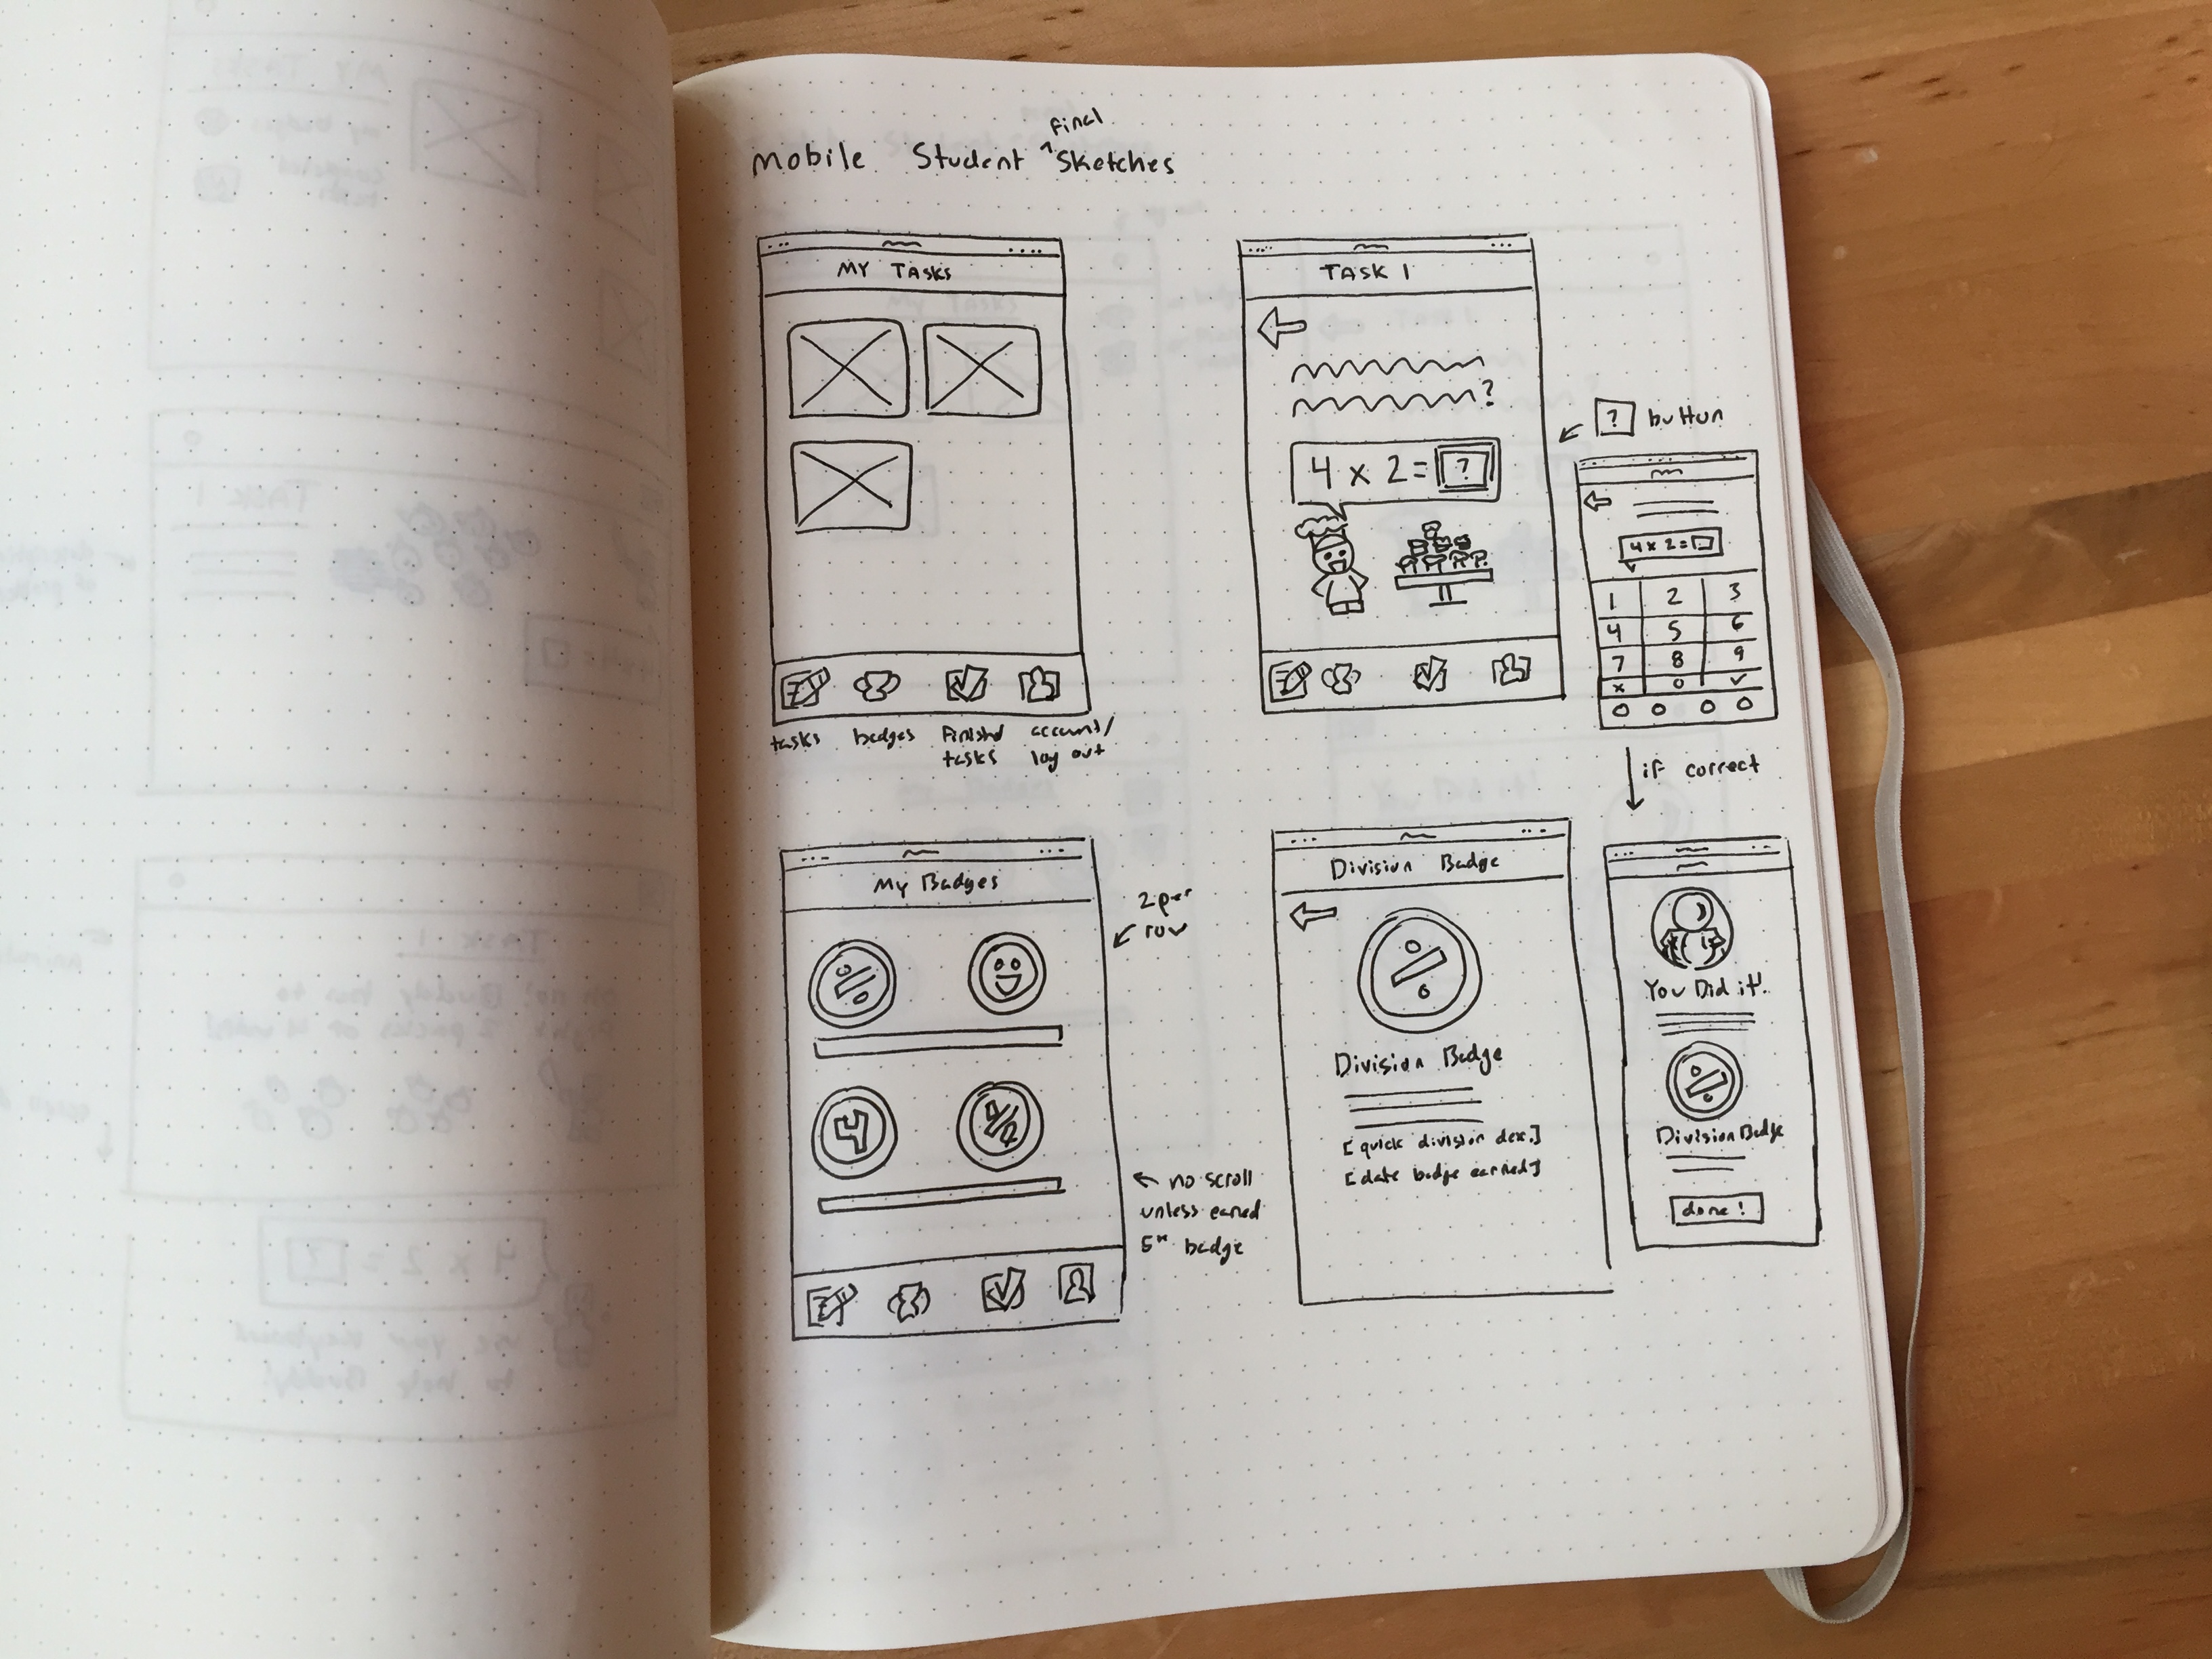 final
mobile Student ^ Sketches
MY TASKS
tasks
badges
finished
tasks
account/
log out
TASK 1
?
4 x 2 = ?
? button
4 x 2 =
1 2 3
4 5 6
7 8 9
x 0 ✓
if correct
My Badges
2 per
row
÷
4
1/2
no scroll
unless earned
5th badge
Division Badge
÷
Division Badge
[quick division desc.]
[date badge earned]
You Did it!
÷
Division Badge
done!